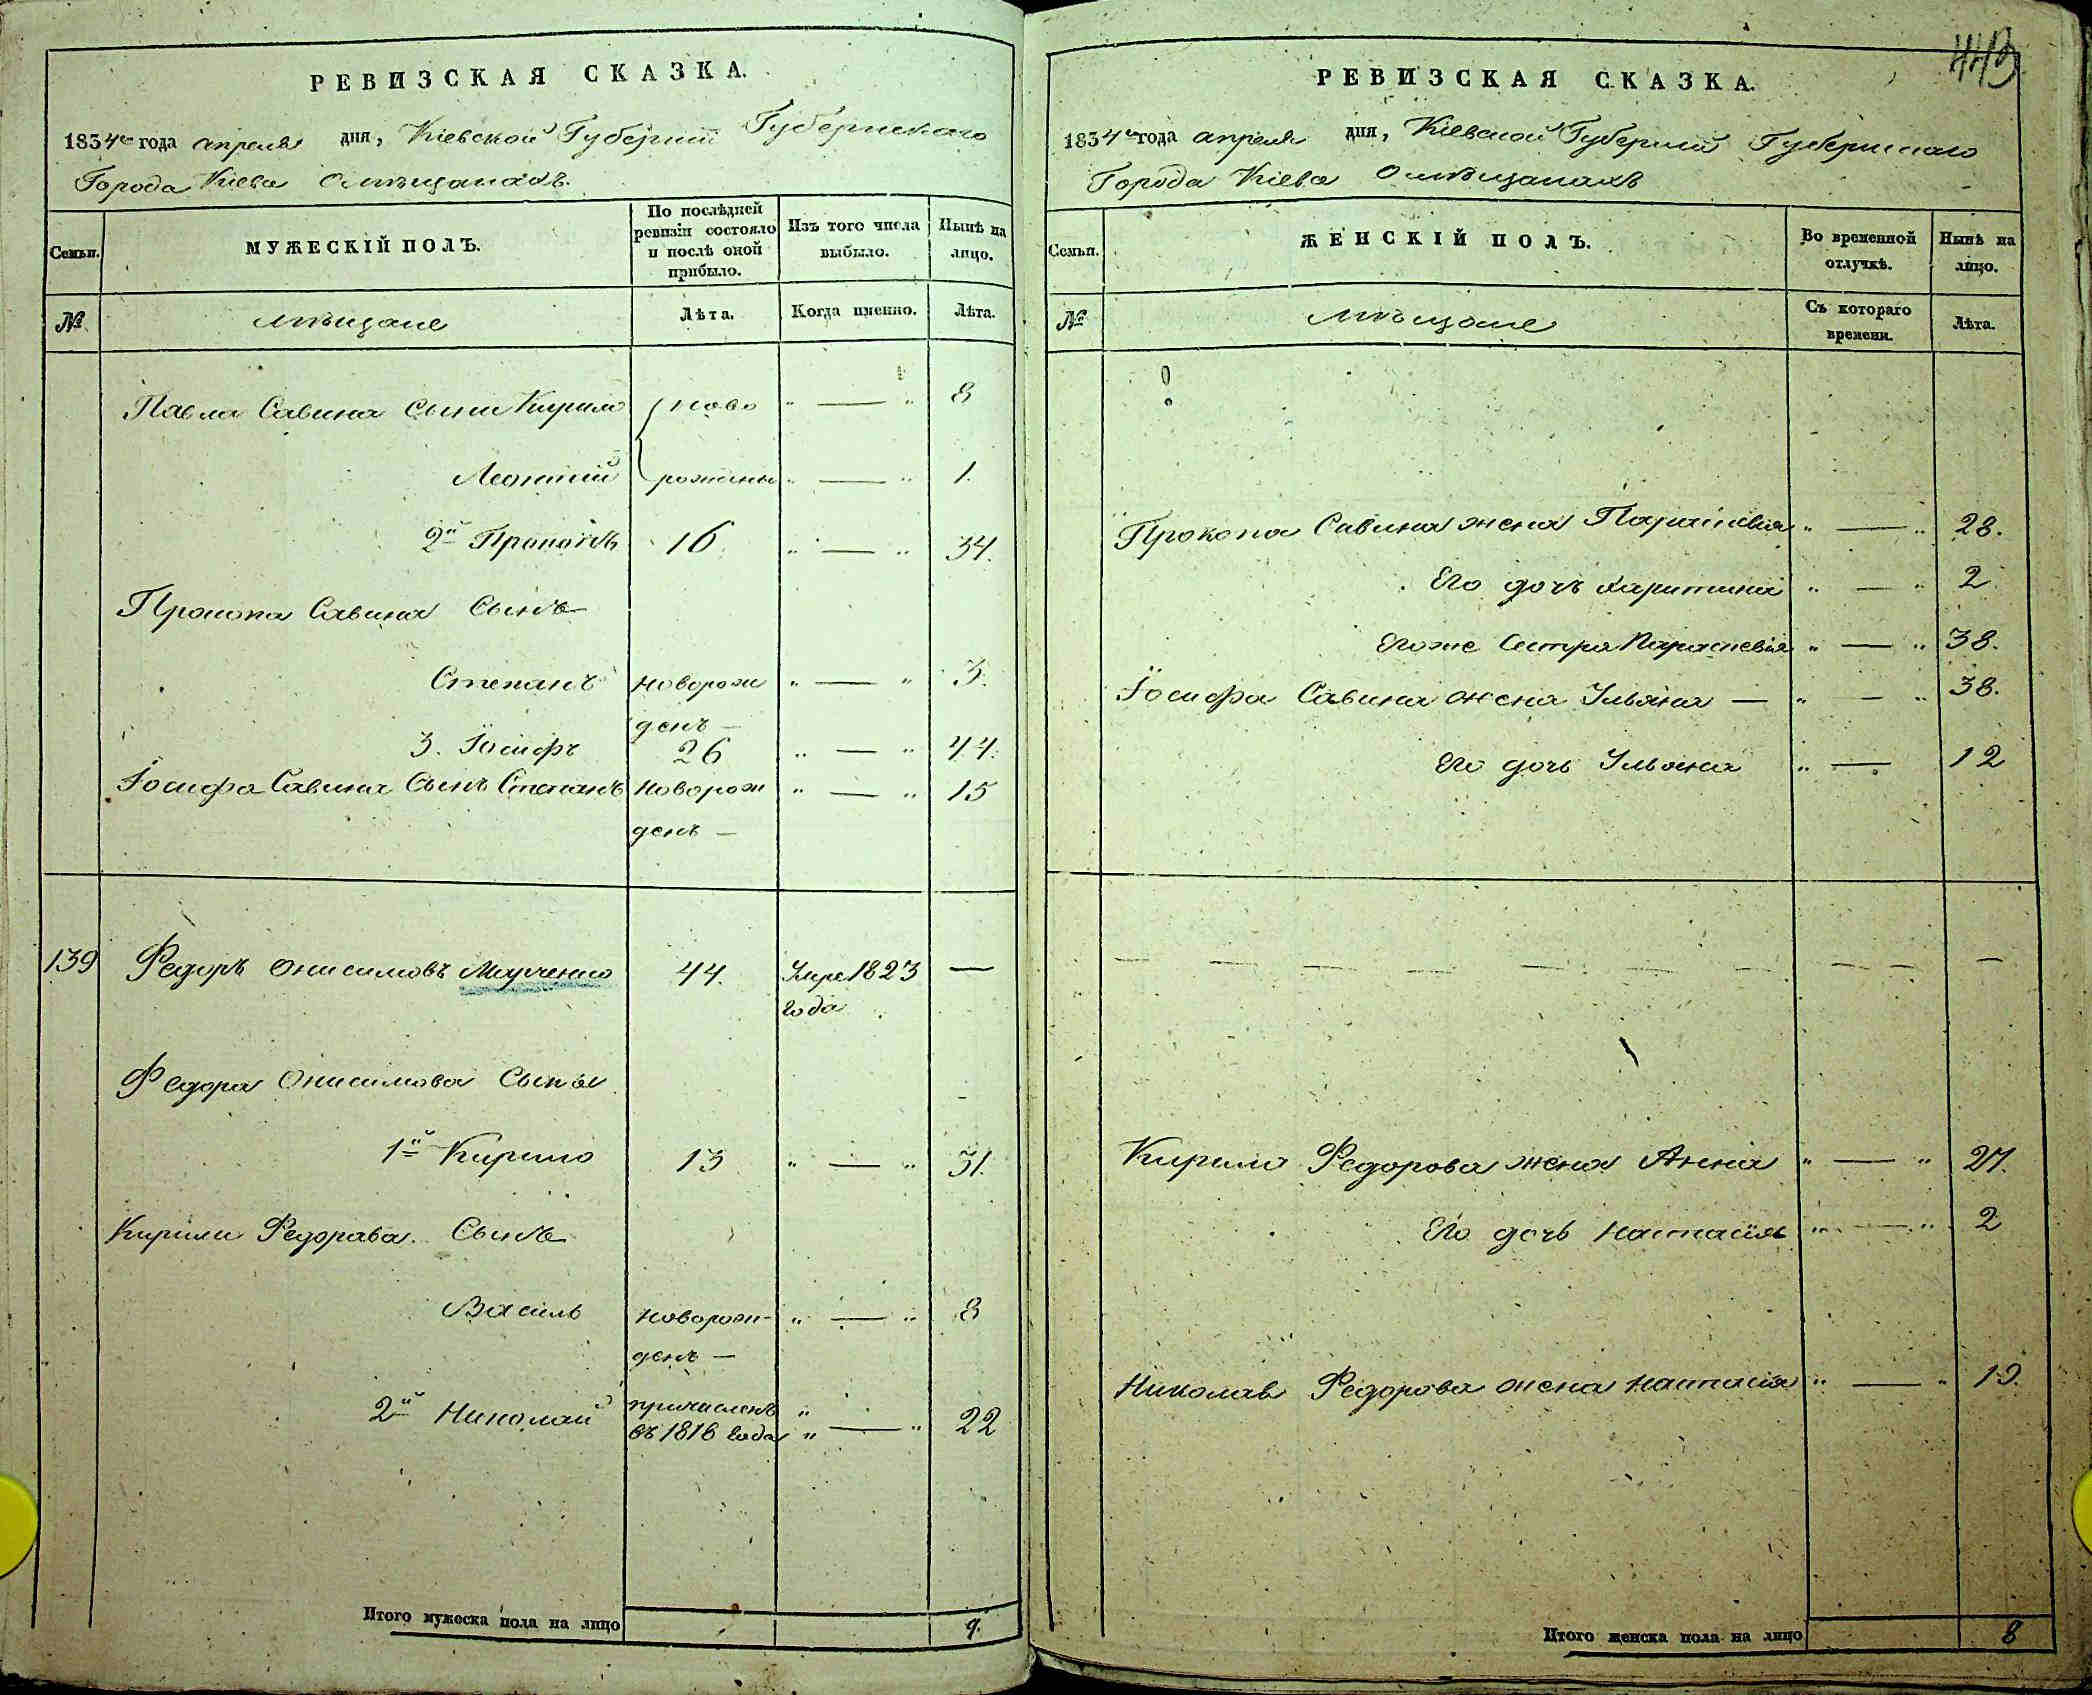 РЕВИЗСКАЯ СКАЗКА.
1834го года апреля дня, Кіевской Губерніи Губернскаго
Города Кіева О мѣщанахъ.
Семьи.
МУЖЕСКІЙ ПОЛЪ.
По послѣдней ревизіи состояло и послѣ оной прибыло.
Изъ того числа выбыло.
Нынѣ на лицо.
№
мѣщане
Лѣта.
Когда именно.
Лѣта.
Павла Савина сыни Кирило ново " — " 8
Леонтій рожены " — " 1.
2й Прокопъ 16 " — " 34.
Прокопа Савина Сынъ
Степанъ новорож " — " 3.
денъ —
3. Іосифъ 26 " — " 44.
Іосифа Савина Сынъ Степанъ новорож " — " 15
денъ —
139 Федоръ Онисимовъ Марченко 44. Умре 1823 —
года
Федора Онисимова Сыны
1й Кирило 13 " — " 31.
Кирили Федорава Сынъ
Василь новорож- " — " 8
денъ —
2й Николай причисленъ "
въ 1816 года " — " 22
Итого мужеска пола на лицо 9.
443
РЕВИЗСКАЯ СКАЗКА.
1834го года апреля дня, Кіевской Губерніи Губернскаго
Города Кіева О мѣщанахъ
Семьи.
ЖЕНСКІЙ ПОЛЪ.
Во временной отлучкѣ.
Нынѣ на лицо.
№
Мѣщане
Съ котораго времени.
Лѣта.
Прокопа Савина жена Параскевія " — " 28.
Его дочь Харитина " — " 2
Егоже Сестра Параскевія " — " 38.
Іосифа Савина жена Ульяна — " — " 38.
Его дочь Ульяна " — 12
— — — — — — — — — — —
Кирила Федорова жена Анна " — " 27.
Его дочь Настасія " — " 2
Николая Федорова жена Настасія " — " 19.
Итого женска пола на лицо 8